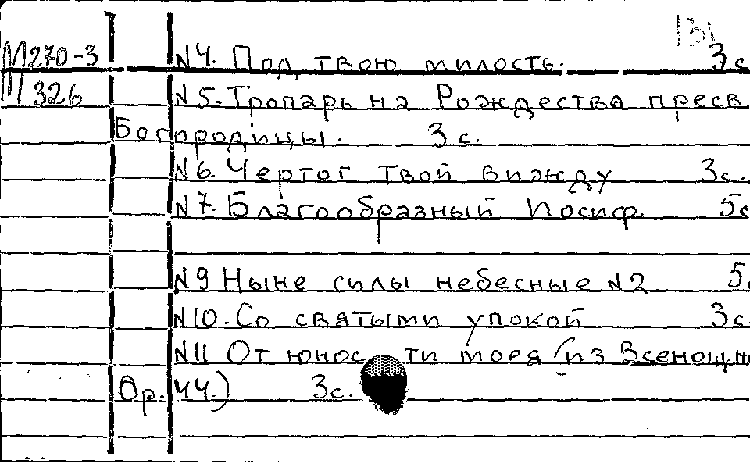 131
М270-3 N4. Под твою милость. 3с
П326 N5. Тропарь на Рождества пресв
Богородицы. 3с.
N6. Чертог твой вижду 3с.
N7. Благообразный Иосиф. 5с
N9 Ныне силы небесные N2 5.
N10. Со святыми упокой 3с.
N11 От юности моея (из Всенощн
Ор. 44.) 3с.